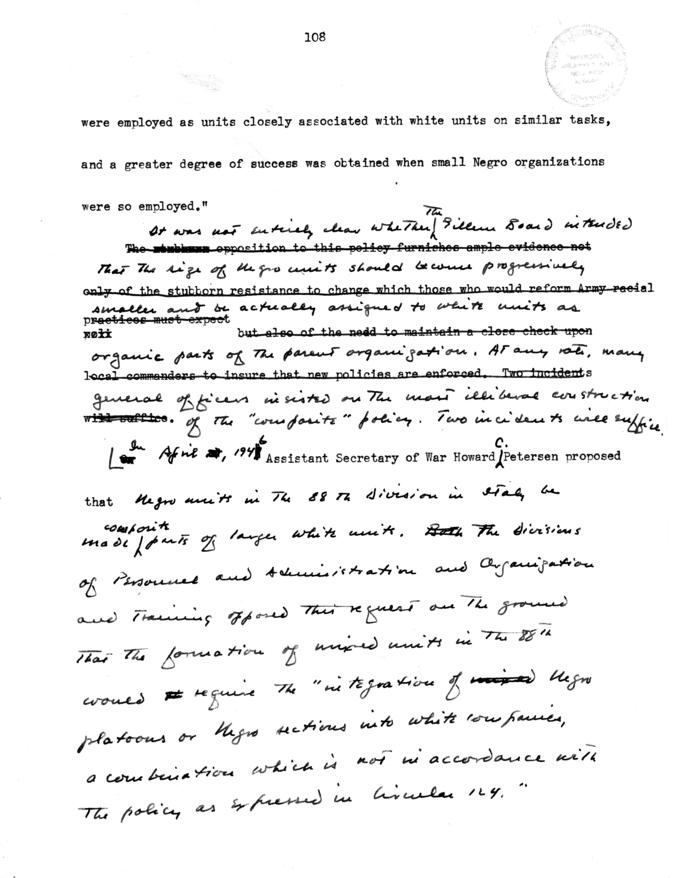 108
were employed as units closely associated with white units on similar tasks,
and a greater degree of success was obtained when small Negro organizations
were so employed."
The
It was not entirely clear whether Gillem Board intended
The stubborn opposition to this policy furnishes ample evidence not
that the size of Negro units should become progressively
only of the stubborn resistance to change which those who would reform Army racial
smaller and be actually assigned to white units as
practices must expect
but also of the nedd to maintain a close check upon
organic parts of the parent organization. At any rate, many
local commanders to insure that new policies are enforced. Two incidents
general officers insisted on the most illiberal construction
will suffice. of the "composite" policy. Two incidents will suffice.
In April 1946 Assistant Secretary of War Howard C. Petersen proposed
that Negro units in the 88th Division in Italy be
composite
made parts of larger white units. Both The divisions
of Personnel and Administration and Organization
and Training opposed this request on the ground
that the formation of mixed units in the 88th
would require the "integration of mixed Negro
platoons or Negro sections into white companies,
a combination which is not in accordance with
the policy as expressed in Circular 124."